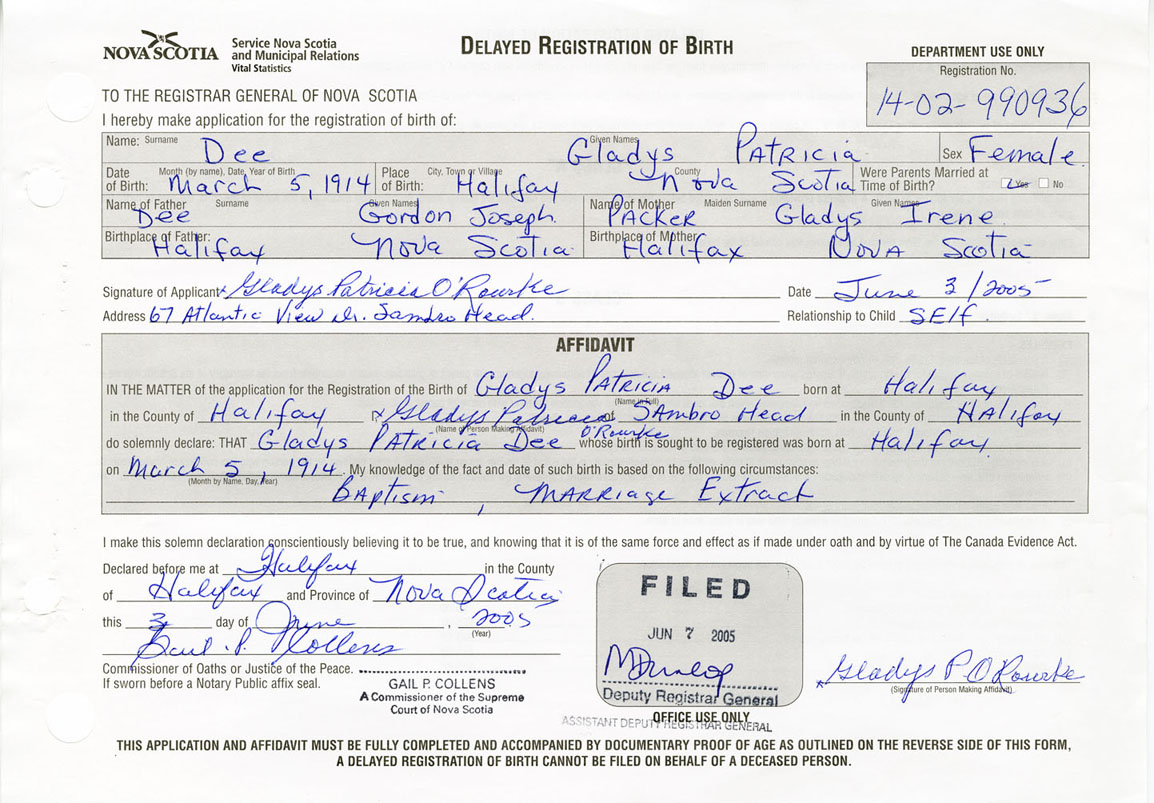 NOVA SCOTIA
Service Nova Scotia
and Municipal Relations
Vital Statistics
DELAYED REGISTRATION OF BIRTH
DEPARTMENT USE ONLY
Registration No.
14-02-990936
TO THE REGISTRAR GENERAL OF NOVA SCOTIA
I hereby make application for the registration of birth of:
Name: Surname Dee Given Names Gladys Patricia Sex Female
Date of Birth: Month (by name), Date, Year of Birth March 5, 1914 Place of Birth: City, Town or Village Halifax County Nova Scotia Were Parents Married at Time of Birth? Yes No
Name of Father Surname Dee Given Names Gordon Joseph Name of Mother Maiden Surname Packer Given Names Gladys Irene
Birthplace of Father: Halifax Nova Scotia Birthplace of Mother Halifax Nova Scotia
Signature of Applicant x Gladys Patricia O'Rourke Date June 3/2005
Address 67 Atlantic View Dr. Sambro Head. Relationship to Child SElf.
AFFIDAVIT
IN THE MATTER of the application for the Registration of the Birth of Gladys Patricia Dee born at Halifax
(Name in Full)
in the County of Halifax I, x Gladys Patricia O'Rourke of Sambro Head in the County of Halifax
(Name of Person Making Affidavit)
do solemnly declare: THAT Gladys Patricia Dee whose birth is sought to be registered was born at Halifax
on March 5, 1914. My knowledge of the fact and date of such birth is based on the following circumstances:
(Month by Name, Day, Year)
Baptism, Marriage Extract
I make this solemn declaration conscientiously believing it to be true, and knowing that it is of the same force and effect as if made under oath and by virtue of The Canada Evidence Act.
Declared before me at Halifax in the County
of Halifax and Province of Nova Scotia
this 3 day of June, 2005
(Year)
Gail P. Collens
Commissioner of Oaths or Justice of the Peace.
If sworn before a Notary Public affix seal.
GAIL P. COLLENS
A Commissioner of the Supreme
Court of Nova Scotia
FILED
JUN 7 2005
M Dunlop
Deputy Registrar General
OFFICE USE ONLY
ASSISTANT DEPUTY REGISTRAR GENERAL
x Gladys P O'Rourke
(Signature of Person Making Affidavit)
THIS APPLICATION AND AFFIDAVIT MUST BE FULLY COMPLETED AND ACCOMPANIED BY DOCUMENTARY PROOF OF AGE AS OUTLINED ON THE REVERSE SIDE OF THIS FORM,
A DELAYED REGISTRATION OF BIRTH CANNOT BE FILED ON BEHALF OF A DECEASED PERSON.